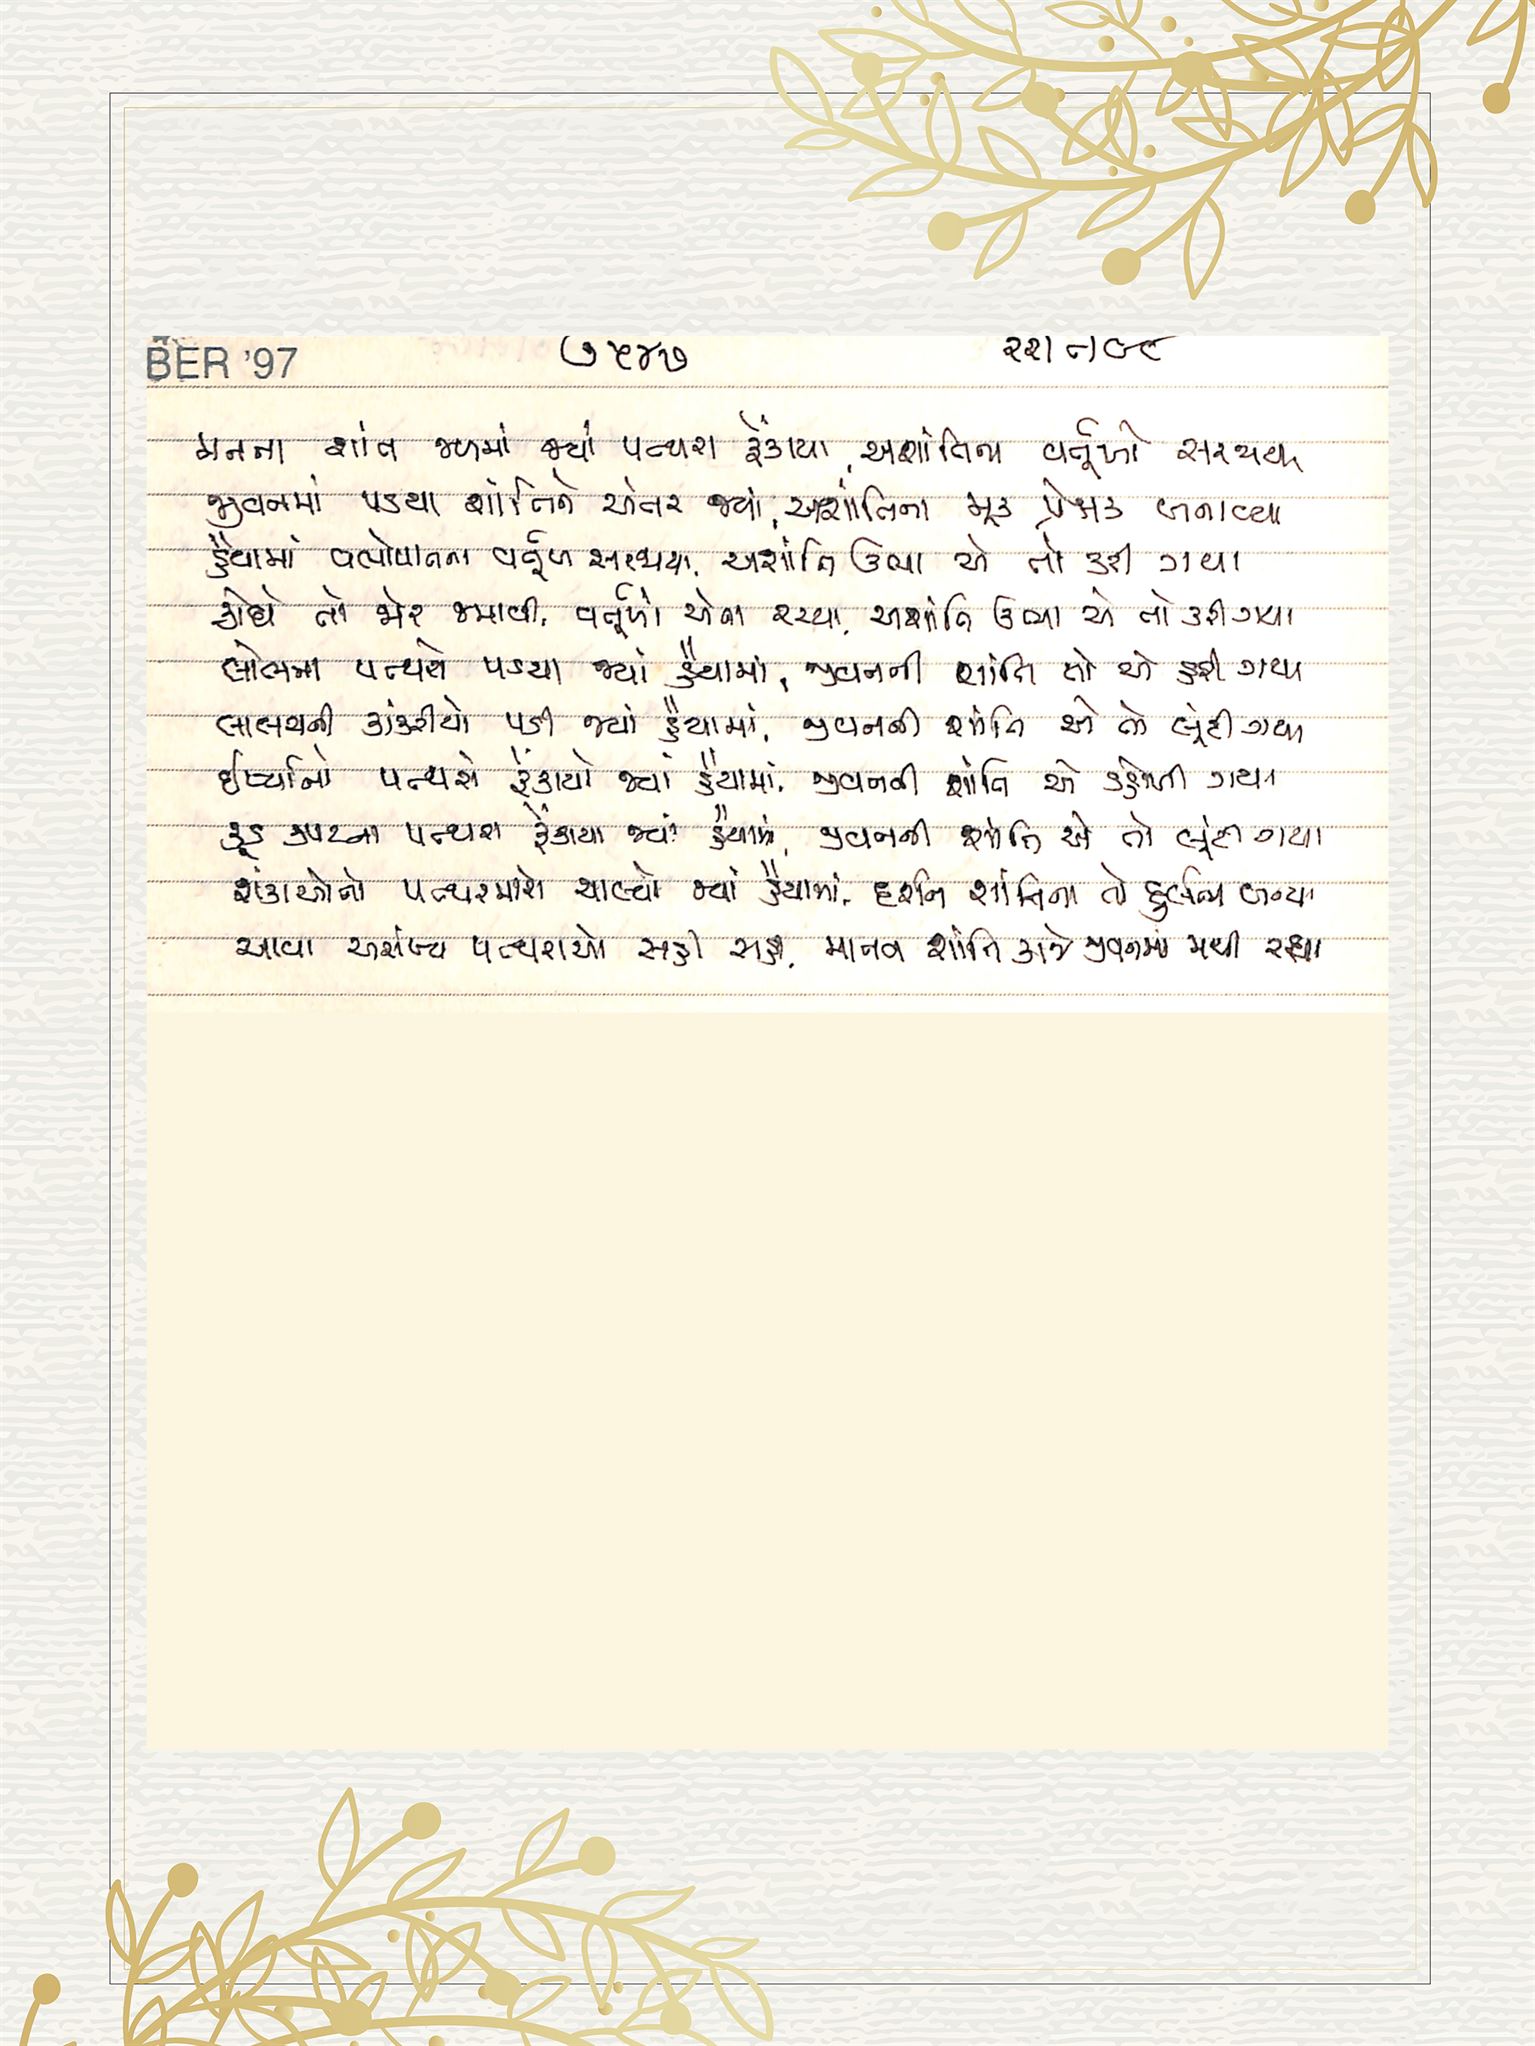 BER '97
૭૫૪૭
મનના શાંત જળમાં જ્યાં પત્થરા ફેંકાયા, અશાંતિના વર્તૂળો સરજાયા
જીવનમાં પડયા શાંતિને અંતર જ્યાં, અશાંતિના મૂક પ્રેક્ષક બનાવ્યા
હૈયામાં વલોપાતના વર્તૂળ સરજાયા, અશાંતિ ઉભા એ તો કરી ગયા
ક્રોધે તો જોર જમાવી, વર્તૂળો એવા રચ્યા, અશાંતિ ઉભા એ તો કરી ગયા
લોભના પત્થરો પડયા જ્યાં હૈયામાં, જીવનની શાંતિ તો એ હરી ગયા
લાલચની કાંકરીયો પડી જ્યાં હૈયામાં, જીવનની શાંતિ એ તો લૂંટી ગયા
ઈર્ષ્યાનો પત્થરો ફેંકાયો જ્યાં હૈયામાં, જીવનની શાંતિ એ ડહોળી ગયા
કૂડ કપટના પત્થરા ફેંકાયા જ્યાં હૈયામાં, જીવનની શાંતિ એ તો લૂંટી ગયા
શંકાઓનો પત્થરમારો ચાલ્યો જ્યાં હૈયામાં, દર્શન શાંતિના તો દુર્લભ બન્યા
આવા અસંખ્ય પત્થરાઓ સહી સહી, માનવ શાંતિ કાજે જીવનમાં મથી રહ્યા